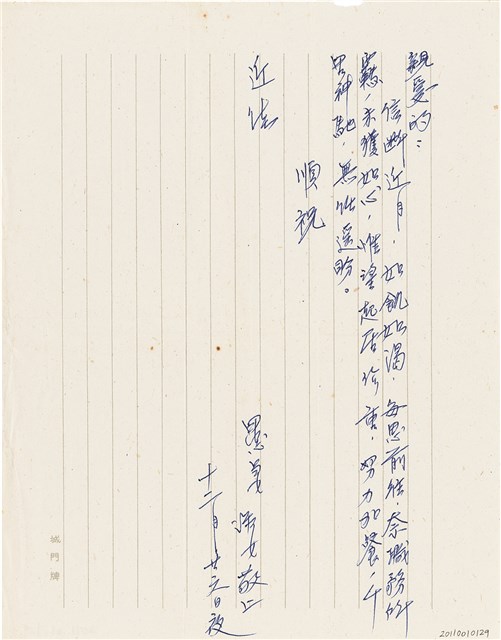 親愛的：
信斷近月，如飢如渴，每思前往，奈職務所
羈，未獲如心，惟望起居珍重，努力加餐，千
里神馳，無任遙盼。
順祝
近佳
敬上
十二月廿日夜
城門牌
20110010129